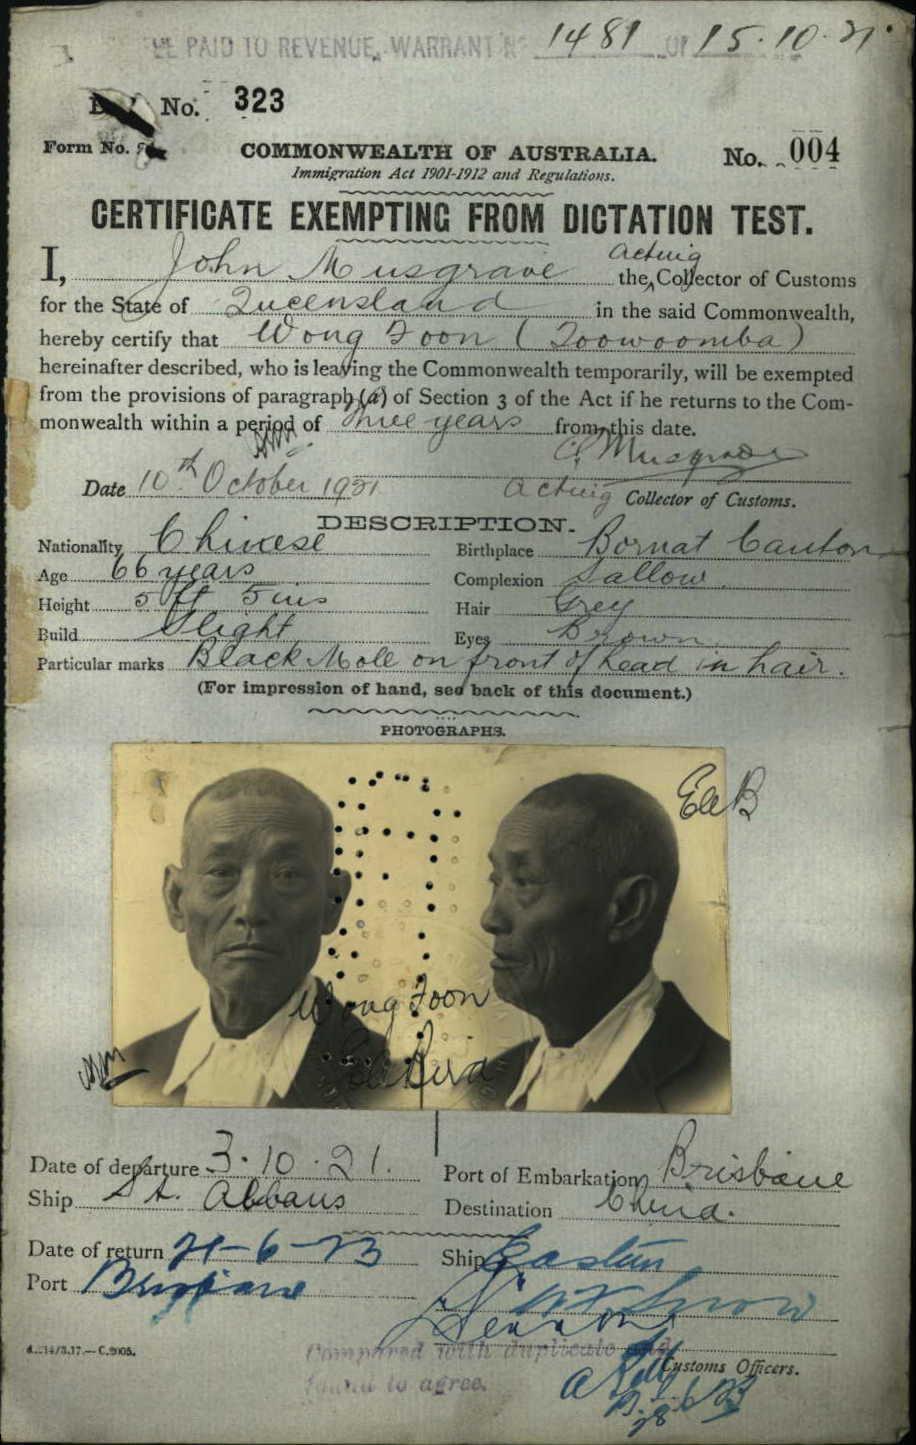 BE PAID TO REVENUE, WARRANT No 1481 OF 15.10.21.
No. 323
Form No.
COMMONWEALTH OF AUSTRALIA. No. 004
Immigration Act 1901-1912 and Regulations.
CERTIFICATE EXEMPTING FROM DICTATION TEST.
I, John Musgrave the Acting Collector of Customs
for the State of Queensland in the said Commonwealth,
hereby certify that Wong Foon (Toowoomba)
hereinafter described, who is leaving the Commonwealth temporarily, will be exempted
from the provisions of paragraph (a) of Section 3 of the Act if he returns to the Com-
monwealth within a period of three years from this date.
Musgrave
Date 10th October 1921 Acting Collector of Customs.
DESCRIPTION.
Nationality Chinese Birthplace Canton
Age 66 years Complexion Sallow.
Height 5 ft 5 ins Hair Grey
Build Slight Eyes Brown
Particular marks Black Mole on front of head in hair.
(For impression of hand, see back of this document.)
PHOTOGRAPHS.
Wong Foon
Date of departure 3.10.21. Port of Embarkation Brisbane
Ship St. Albans Destination China.
Date of return 21-6-23 Ship Eastern
Port Brisbane
Compared with duplicate and
found to agree.
Customs Officers.